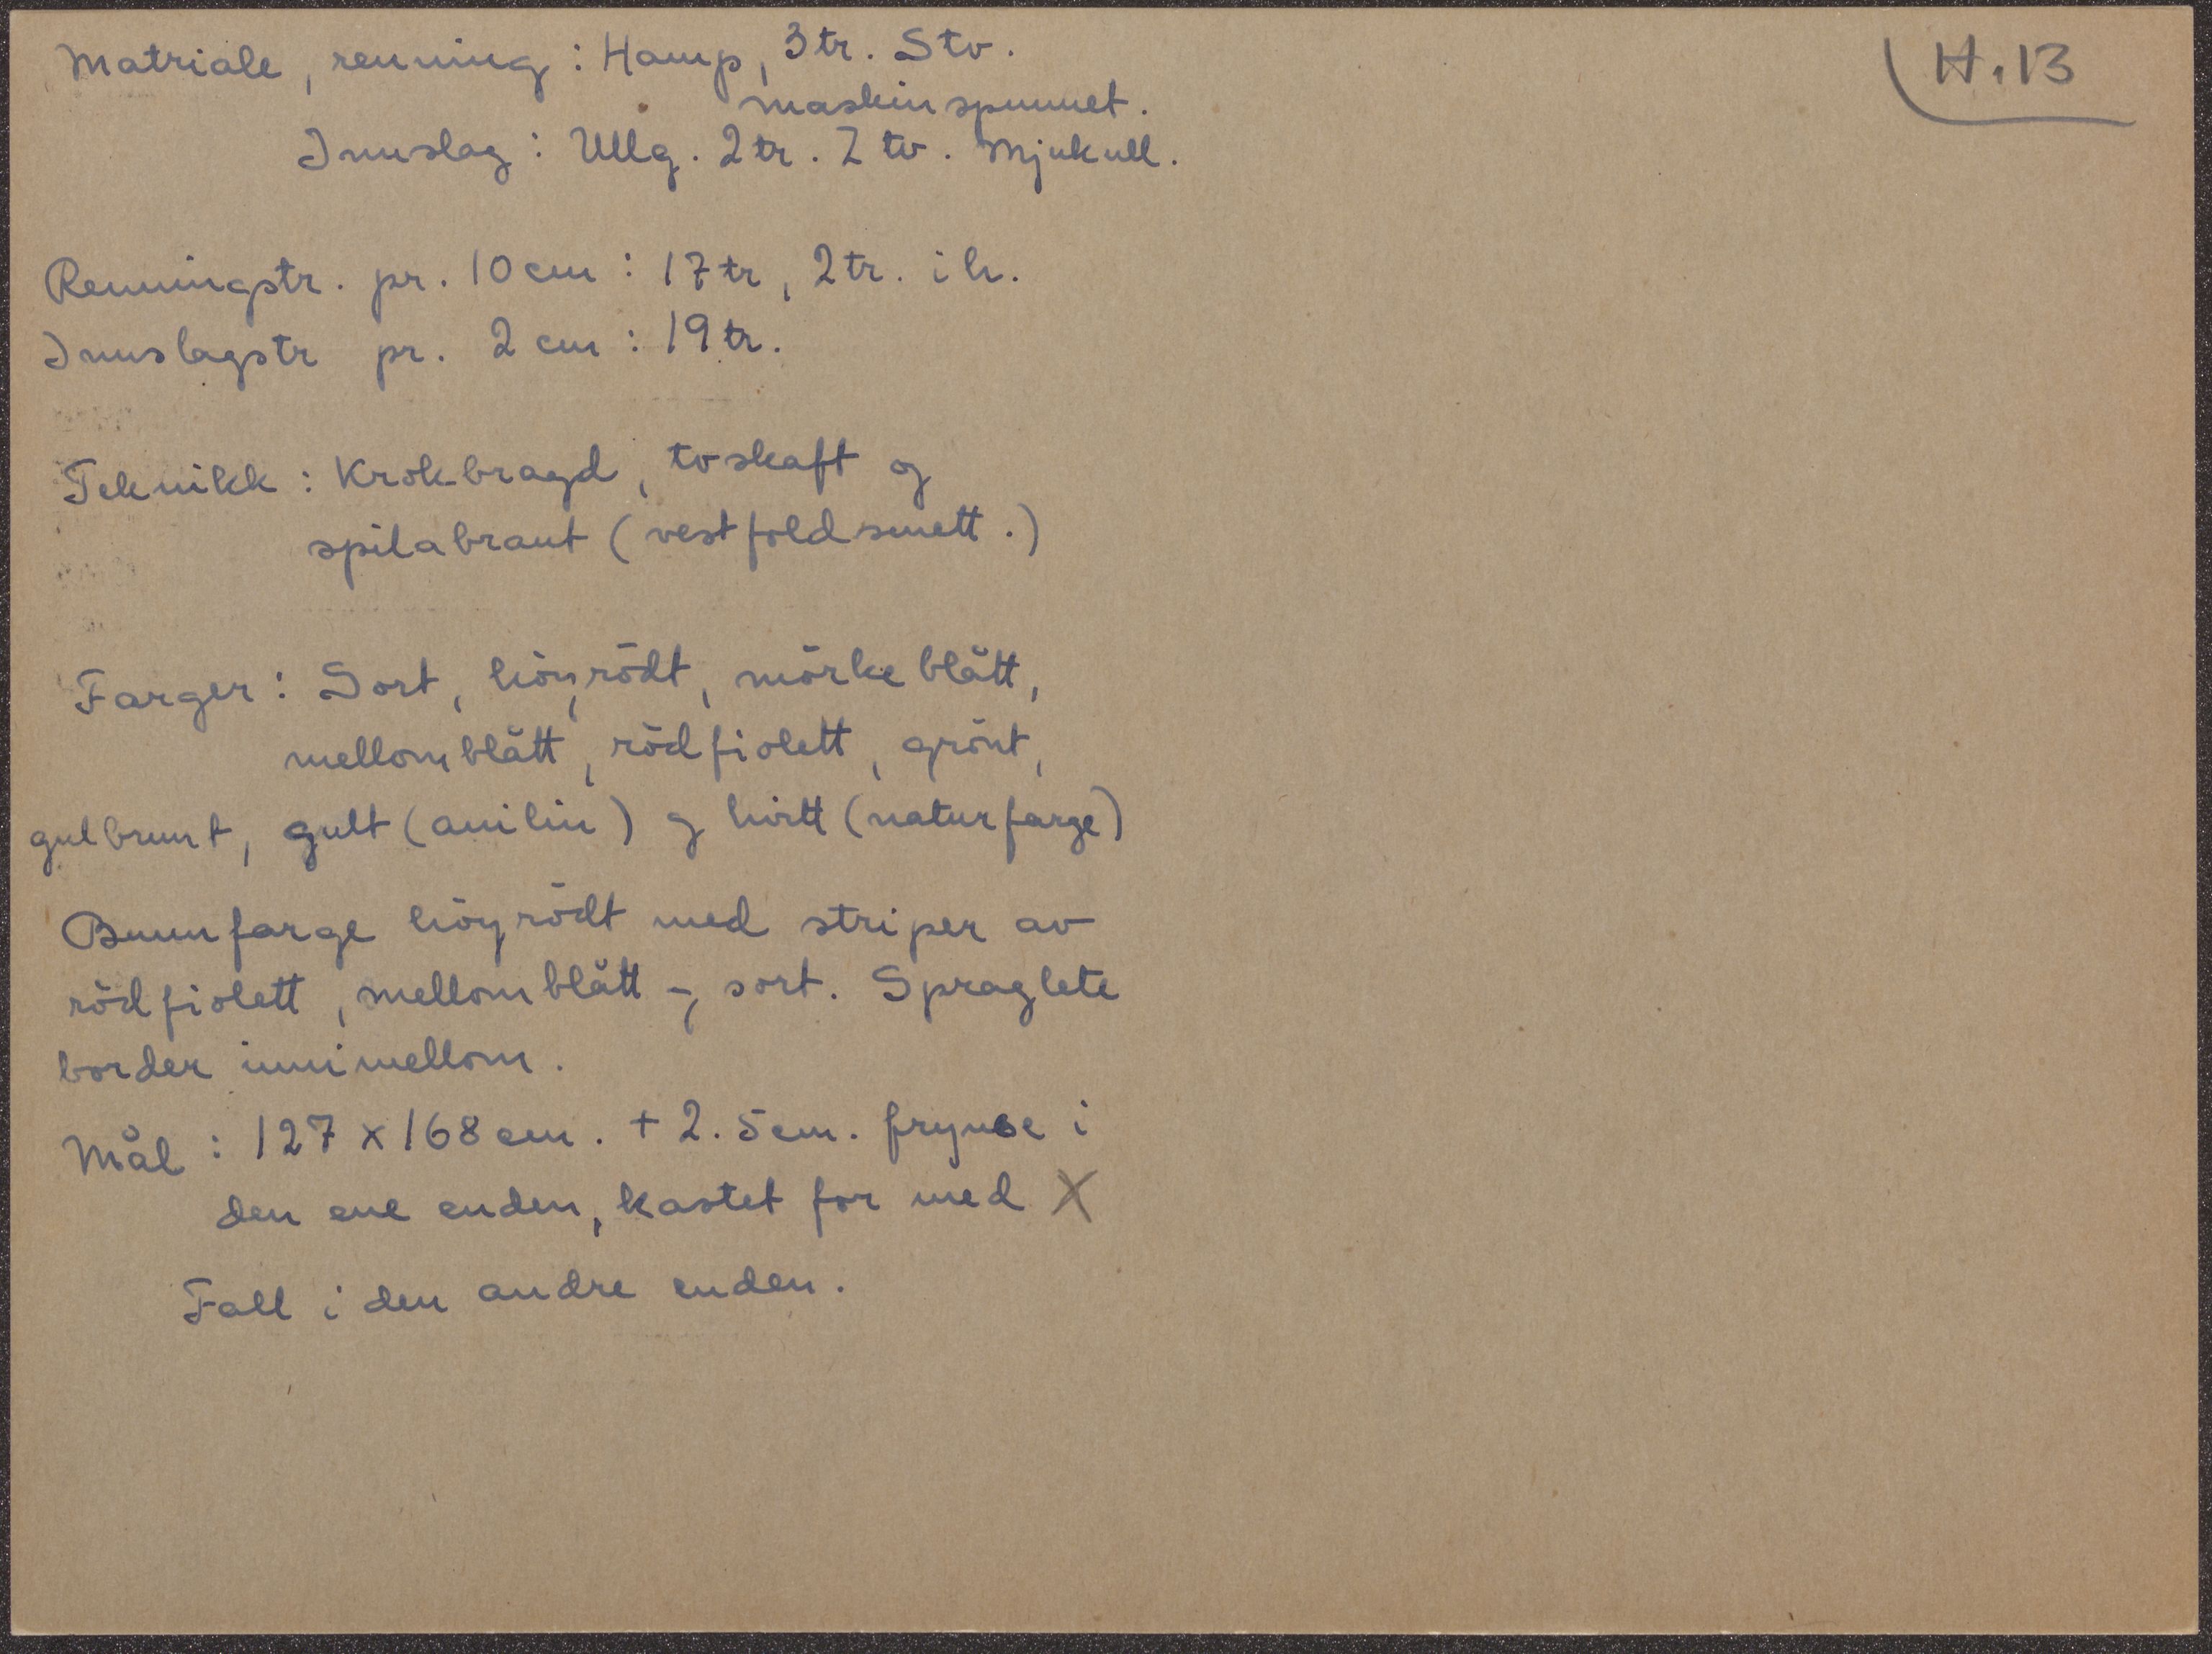 H.13
Matriale, renning: Hamp, 3 tr. S tv.
maskinspunnet.
Innslag: Ullg. 2 tr. Z tv. Mjuk ull.
Renningstr. pr. 10 cm: 17 tr, 2 tr. i h.
Innslagstr pr. 2 cm: 19 tr.
Teknikk: Krokbragd, toskaft og
spilabraut (vestfoldsmett.)
Farger: Sort, höyrödt, mörkeblått,
mellomblått, rödfiolett, grönt,
gulbrunt, gult (anilin) og hvitt (naturfarge)
Bunnfarge höyrödt med striper av
rödfiolett, mellomblått og sort. Spraglete
border innimellom.
Mål: 127 x 168 cm. + 2.5 cm. frynse i
den ene enden, kastet for med X
Fall i den andre enden.